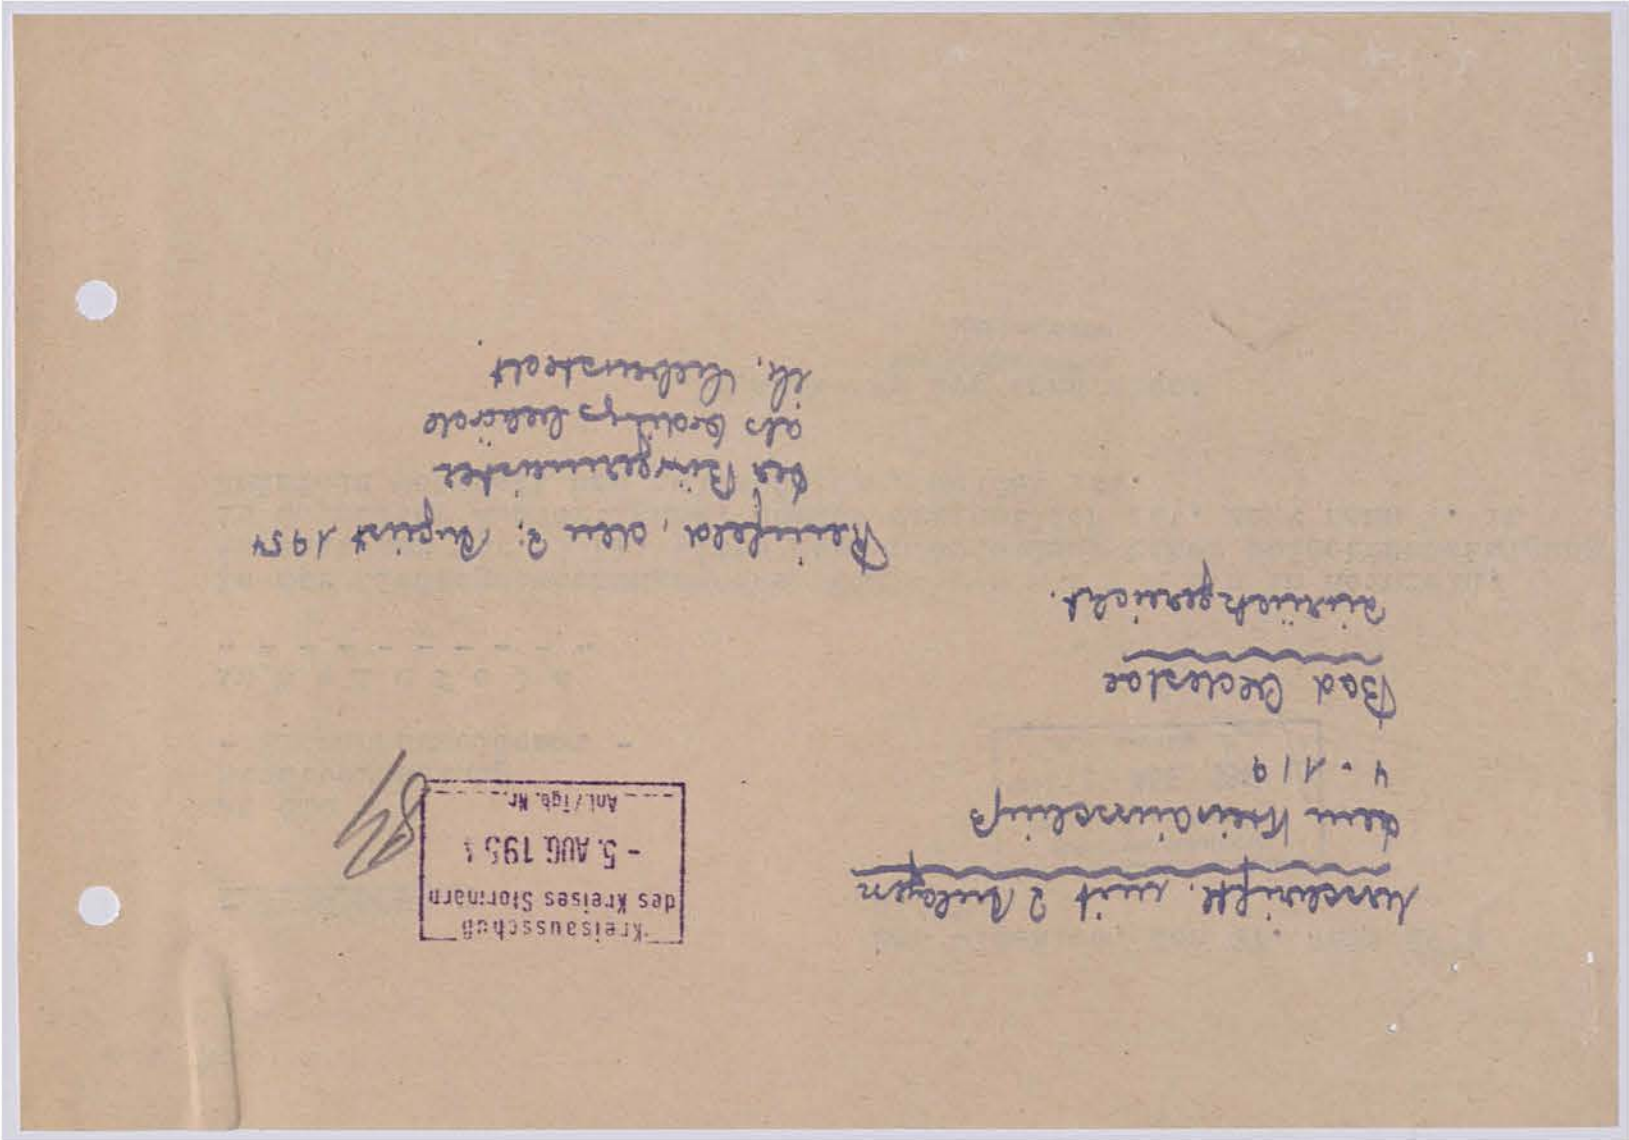 Urschriftl. mit 2 Anlagen
dem Kreisausschuß
4 - 1/9
Bad Oldesloe
zurückgereicht.
Kreisausschuß
des Kreises Stormarn
- 5. AUG. 195
Anl./Tgb. Nr.
Reinfeld, den 3. August 1954
Der Bürgermeister
als Ordnungsbehörde